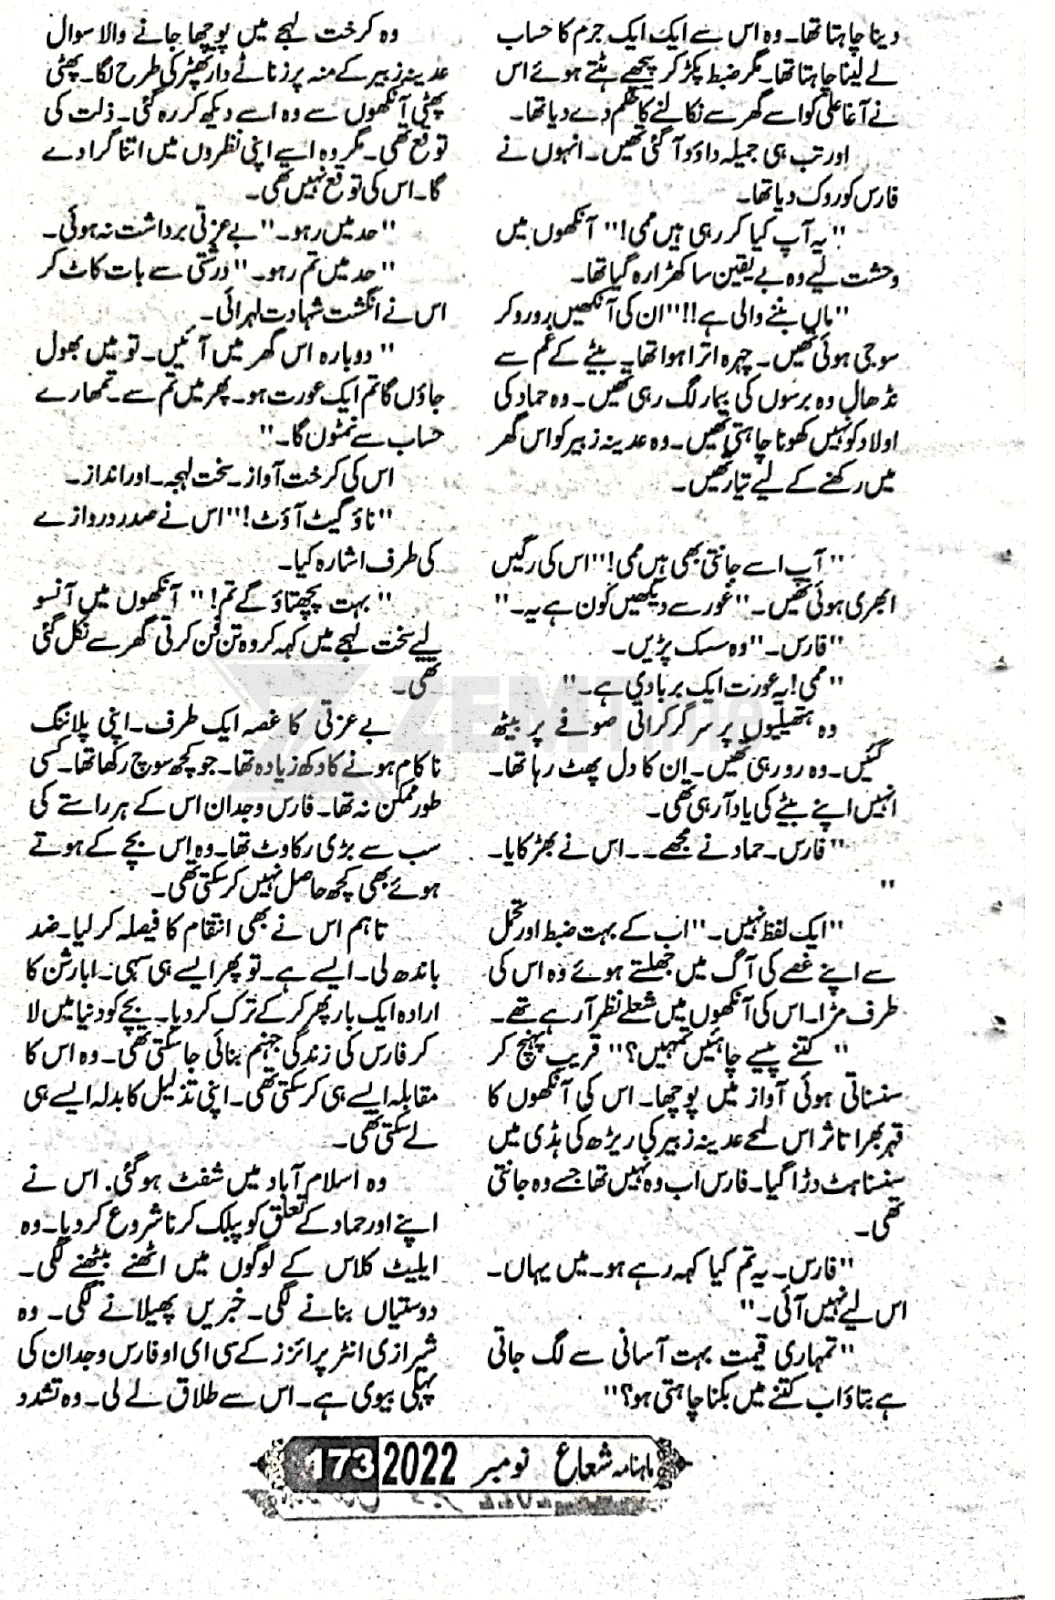 دینا چاہتا تھا۔ وہ اس سے ایک ایک جرم کا حساب
لے لینا چاہتا تھا۔ مگر ضبط پکڑ کر پیچھے ہٹتے ہوئے اس
نے آغا علی کو اسے گھر سے نکالنے کا حکم دے دیا تھا۔
اور تب ہی جمیلہ داؤد آ گئی تھیں۔ انہوں نے
فارس کو روک دیا تھا۔
"یہ آپ کیا کر رہی ہیں ممی!" آنکھوں میں
وحشت لیے وہ بے یقین سا کھڑا رہ گیا تھا۔
"ماں بننے والی ہے!!" ان کی آنکھیں رو رو کر
سوجی ہوئی تھیں۔ چہرہ اترا ہوا تھا۔ بیٹے کے غم سے
نڈھال وہ برسوں کی بیمار لگ رہی تھیں۔ وہ حماد کی
اولاد کو نہیں کھونا چاہتی تھیں۔ وہ عدینہ زبیر کو اس گھر
میں رکھنے کے لیے تیار تھیں۔
"آپ اسے جانتی بھی ہیں ممی!" اس کی رگیں
ابھری ہوئی تھیں۔ "غور سے دیکھیں کون ہے یہ۔"
"فارس۔" وہ سسک پڑیں۔
"ممی! یہ عورت ایک بربادی ہے۔"
وہ ہتھیلیوں پر سر گرا کر صوفے پر بیٹھ
گئیں۔ وہ رو رہی تھیں۔ ان کا دل پھٹ رہا تھا۔
انہیں اپنے بیٹے کی یاد آ رہی تھی۔
"فارس۔ حماد نے مجھے۔۔ اس نے بھڑکایا۔
"
"ایک لفظ نہیں۔" اب کے بہت ضبط اور تحمل
سے اپنے غصے کی آگ میں جھلستے ہوئے وہ اس کی
طرف مڑا۔ اس کی آنکھوں میں شعلے نظر آ رہے تھے۔
"کتنے پیسے چاہئیں تمہیں؟" قریب پہنچ کر
سنسناتی ہوئی آواز میں پوچھا۔ اس کی آنکھوں کا
قہر بھرا تاثر اس لمحے عدینہ زبیر کی ریڑھ کی ہڈی میں
سنسناہٹ دوڑا گیا۔ فارس اب وہ نہیں تھا جسے وہ جانتی
تھی۔
"فارس۔ یہ تم کیا کہہ رہے ہو۔ میں یہاں۔
اس لیے نہیں آئی۔"
"تمہاری قیمت بہت آسانی سے لگ جاتی
ہے بتاؤ اب کتنے میں بکنا چاہتی ہو؟"
وہ کرخت لہجے میں پوچھا جانے والا سوال
عدینہ زبیر کے منہ پر زناٹے دار تھپڑ کی طرح لگا۔ پھٹی
پھٹی آنکھوں سے وہ اسے دیکھ کر رہ گئی۔ ذلت کی
توقع تھی۔ مگر وہ اسے اپنی نظروں میں اتنا گرا دے
گا۔ اس کی توقع نہیں تھی۔
"حد میں رہو۔" بے عزتی برداشت نہ ہوئی۔
"حد میں تم رہو۔" درشتی سے بات کاٹ کر
اس نے انگشت شہادت لہرائی۔
"دوبارہ اس گھر میں آئیں۔ تو میں بھول
جاؤں گا تم ایک عورت ہو۔ پھر میں تم سے۔ تمھارے
حساب سے نمٹوں گا۔"
اس کی کرخت آواز۔ سخت لہجہ۔ اور انداز۔
"ناؤ گیٹ آؤٹ!" اس نے صدر دروازے
کی طرف اشارہ کیا۔
"بہت پچھتاؤ گے تم!" آنکھوں میں آنسو
لیے سخت لہجے میں کہہ کر وہ تن فن کرتی گھر سے نکل گئی
تھی۔
بے عزتی کا غصہ ایک طرف۔ اپنی پلاننگ
ناکام ہونے کا دکھ زیادہ تھا۔ جو کچھ سوچ رکھا تھا۔ کسی
طور ممکن نہ تھا۔ فارس وجدان اس کے ہر راستے کی
سب سے بڑی رکاوٹ تھا۔ وہ اس بچے کے ہوتے
ہوئے بھی کچھ حاصل نہیں کر سکتی تھی۔
تاہم اس نے بھی انتقام کا فیصلہ کر لیا۔ ضد
باندھ لی۔ ایسے ہے۔ تو پھر ایسے ہی سہی۔ ابارشن کا
ارادہ ایک بار پھر کر کے ترک کر دیا۔ بچے کو دنیا میں لا
کر فارس کی زندگی جہنم بنائی جا سکتی تھی۔ وہ اس کا
مقابلہ ایسے ہی کر سکتی تھی۔ اپنی تذلیل کا بدلہ ایسے ہی
لے سکتی تھی۔
وہ اسلام آباد میں شفٹ ہو گئی۔ اس نے
اپنے اور حماد کے تعلق کو پبلک کرنا شروع کر دیا۔ وہ
ایلیٹ کلاس کے لوگوں میں اٹھنے بیٹھنے لگی۔
دوستیاں بنانے لگی۔ خبریں پھیلانے لگی۔ وہ
شیرازی انٹرپرائزز کے سی ای او فارس وجدان کی
پہلی بیوی ہے۔ اس سے طلاق لے لی۔ وہ تشدد
ماہنامہ شعاع نومبر 2022 173